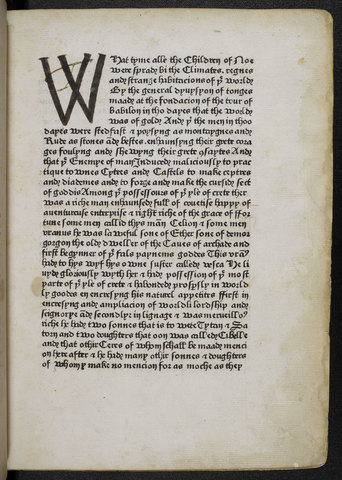 WHat tyme alle the Children of Noe
were sprade bi the Climates. regnes
and strange habitacions of þe worlde
By the general dyuysyon of tonges
maade at the fondacion of the tour of
babilon in tho dayes that the world
was of gold/ And þe men in tho
dayes were stedfast & poysyng as montaygnes and
Rude as stones and bestes. enhansyng their grete cora
ges fowlyng and shewyng their grete
that þe Enemye of man Induced maliciously to prac
tique to wnes Cytees and Castels to make ceptres
and diademes and to forge and make the cursid sect
of goddis Among þe possessours of þe yle of crete ther
was a riche man enhansed full of couetise happy of
auenturus enterprise & right riche of the grace of ffor
tune some men callid thys man Celion & some men
vranus he was laweful sone of Ether sone of demor
gorgon the old dweller of the Caues of archade and
first begynner of þe fals paynems goddes This vran
hady to hys wyf hys owne suster called vesca He li
uyd gloriously wyth her & hade possession of þe most
part of þe yle of crete & habonded prosperly in world
ly goodes encresyng his naturel appetites ffirst in
encresyng and ampliacion of worldli lordship and
seignorye and secondly in lignage & was merueillo9
riche he hade two sonnes that is to wite Tytan & Sa
torn and two doughters that oon was called Cibelle
and that other Ceres of whom schall be maade menci
on here after & he hade many other sonnes & doughters
of whom y make no mencion for as moche as they